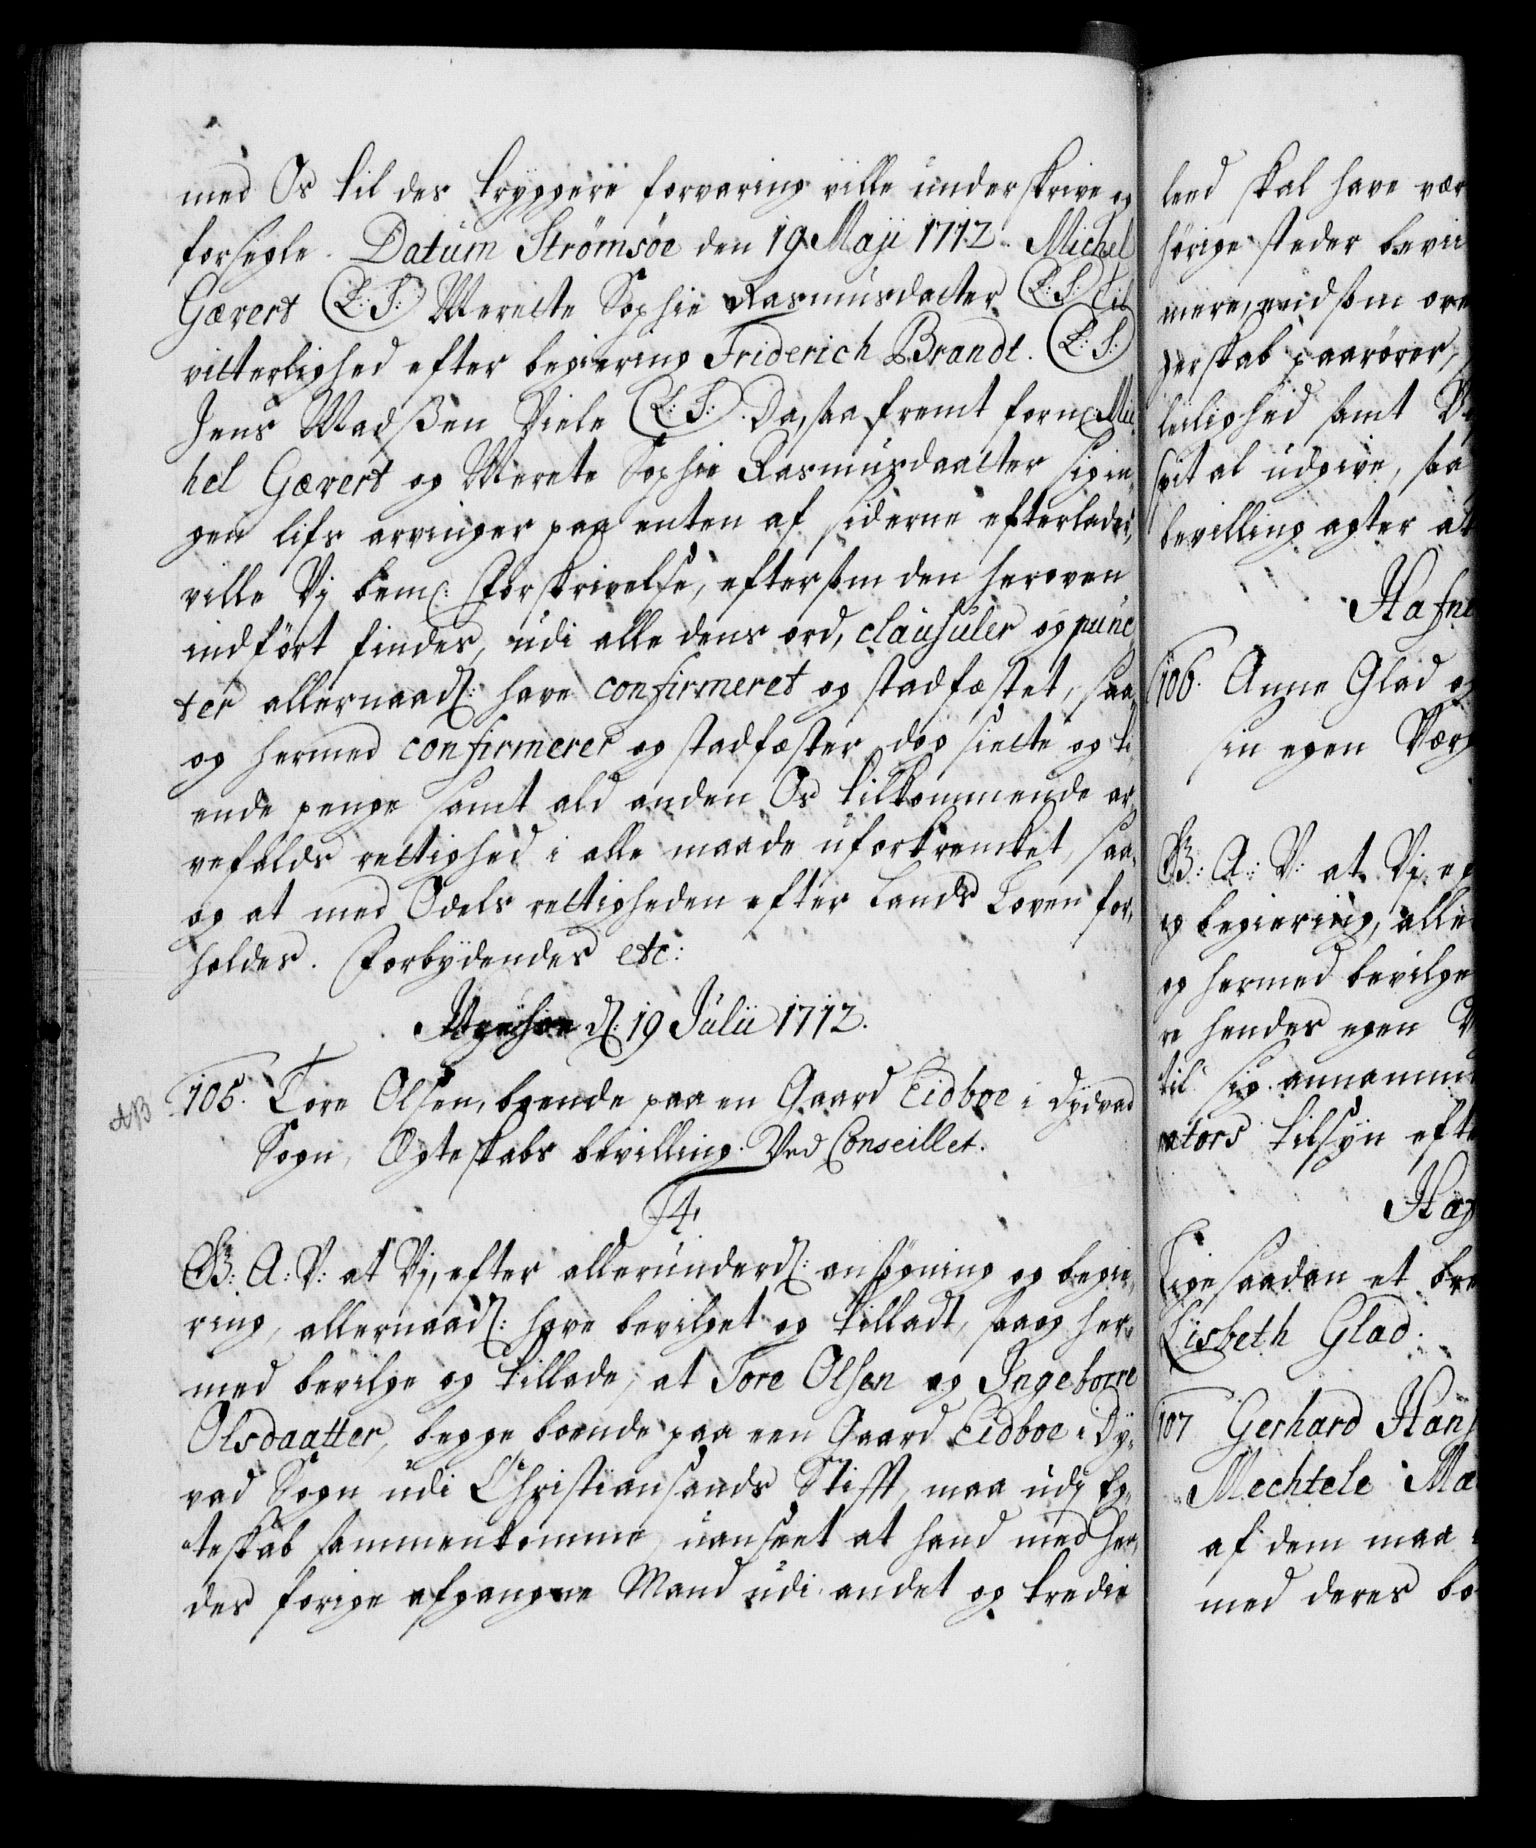 med Os til des tryggere forvaring ville underskrive og
forsegle. Datum Strömsöe den 19 Maji 1712. Michel
Gævert (L:S:) Merette Sophie Rasmusdatter (L:S:) til
vitterlighed efter begiering Friderich Brandt. (L:S:)
Jens Madsßen Viele (L:S:). Da, saafremt forn: Mi-
hel Gævert og Merete Sophie Rasmusdaatter sig in-
gen lifs arvinger paa enten af siderne efterlader,
ville Vj bem: Forskrivelse, eftersom den heroven
indfört findes, udi alle dens ord, clausuler og punc-
ter allernaad: have confirmeret og stadfæstet, saa
og hermed confirmerer og stadfæster dog siette og ti-
ende penge samt ald anden Os tilkommende ar-
vefalds rettighed i alle maade uforkrenket, saa-
og at med Odels rettigheden efter Lands Loven for-
holdes. Forbydendes etc:
d: 19 Julii 1712.
AB
105. Tore Olsen, boende paa en Gaard Eidboe i Dydvad
Sogn, Ægteskabs bevilling. Ved Conseillet.
F4.
G: A: V: at Vj, efter allerunderd: ansögning og begie-
ring, allernaad: have bevilget og tilladt, saaog her-
med bevilge og tillade, at Tore Olsen og Ingeborre
Olsdaatter, begge boende paa een Gaard Eidboe i Dy-
vad Sogn udi Christiansands Stift, maa udj Eg-
teskab sammenkomme, uanseet at hand med hen-
des forige afgangne Mand udi andet og tredie
leed skal have vær
hörige steder bevii
mere, end som
skab paarörer,
leilighed samt
spital udgive, saa
bevilling agter at
Hafne
106. Anne Glad og
sin egen Værg
G: A: V: at Vj, e
og begiering, alle
og hermed bevilge
re hendes egen V
til sig annamm
ators tilsyn eft
Haf
Lige saadan et bre
Lisbeth Glad.
107 Gerhard Hans
Mechtele Ma
af dem maa
med deres bo